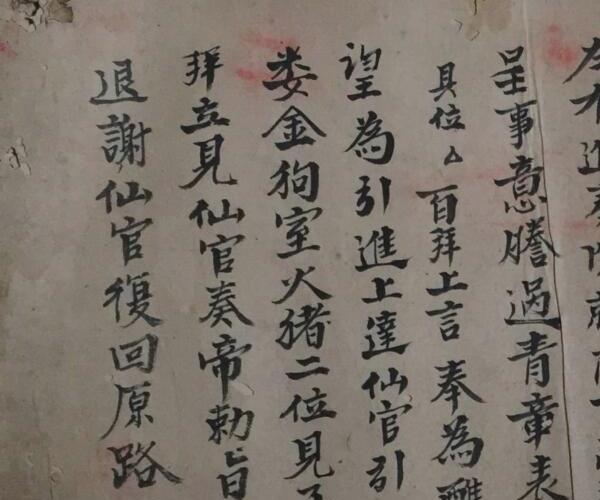 進奏
呈事意謄過青章表
具位厶百拜上言奉為
望為引進上達仙官引
娄金狗室火猪二位見
拜立見仙官奏帝勅旨
退謝仙官復回原路